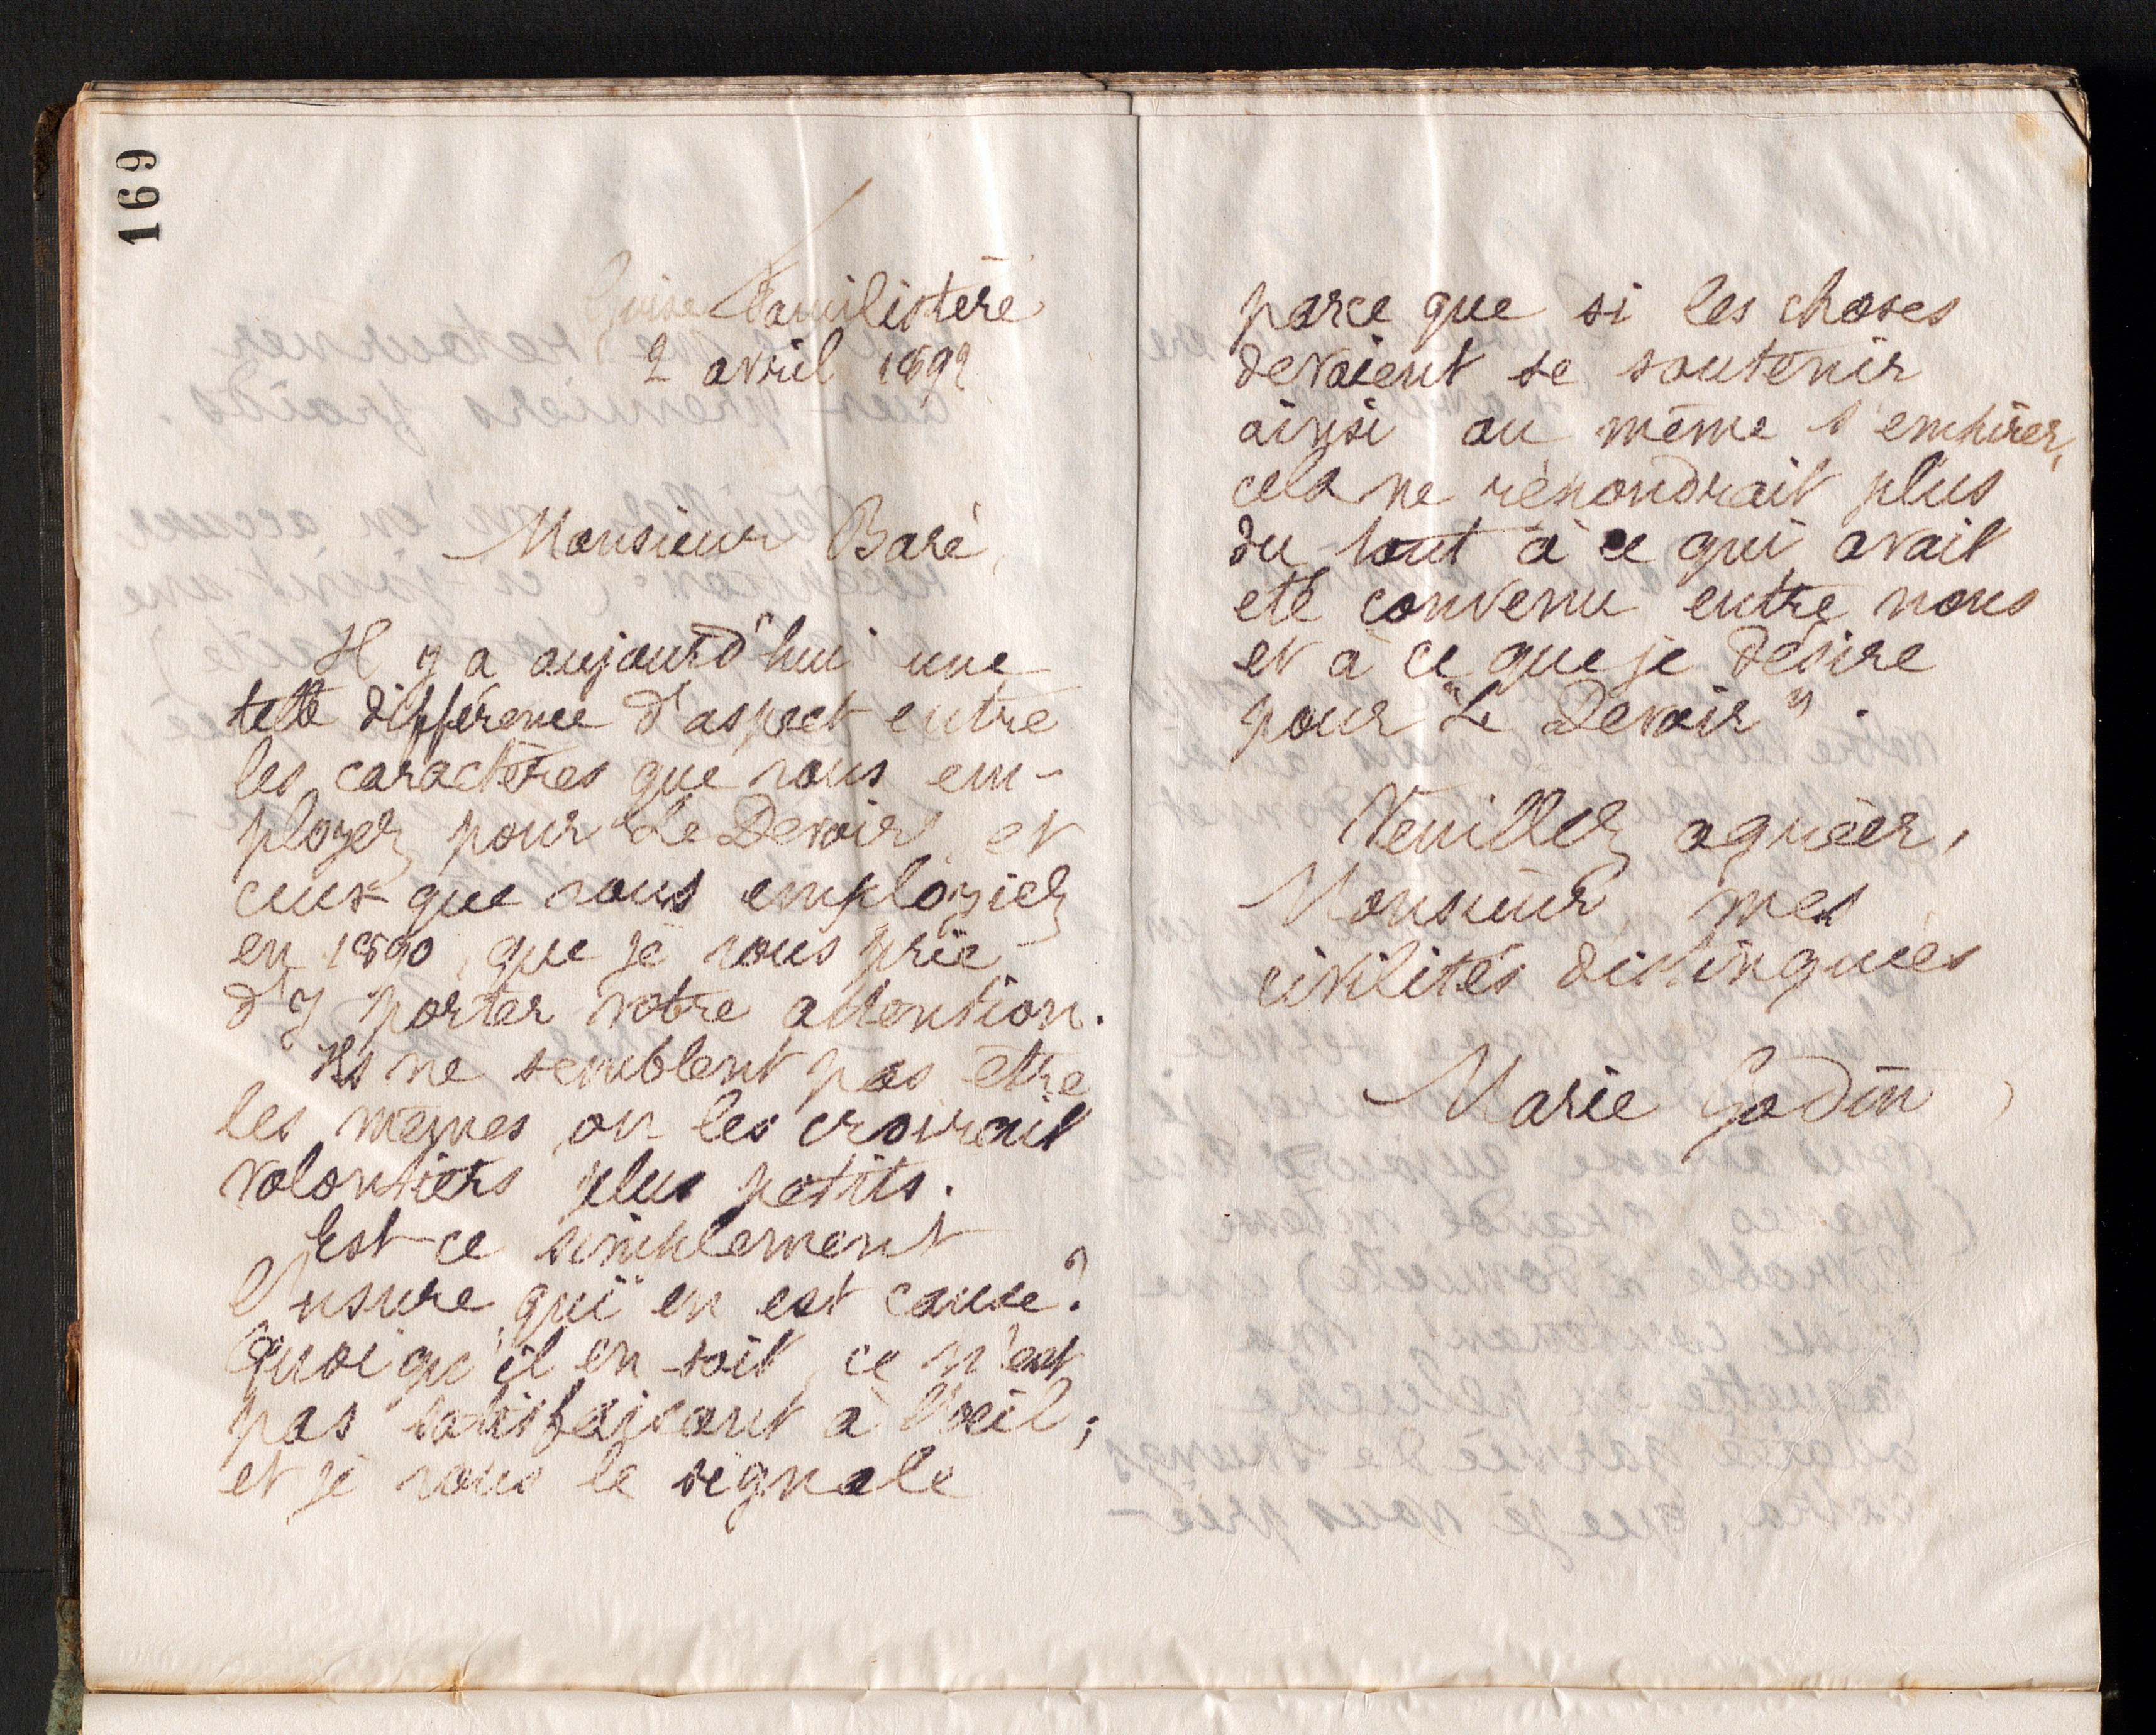 169
Guise Familistère
2 avril 1892
Monsieur Baré,
Il y a aujourd'hui une
telle différence d'aspect entre
les caractères que vous em-
ployez pour "Le Devoir" et
ceux que vous employiez
en 1890, que je vous prie
d'y porter votre attention.
Ils ne semblent pas être
les mêmes on les croirait
volontiers plus petits.
Est-ce simplement
l'usure qui en est cause?
Quoi qu'il en soit, ce n'est
pas satisfaisant à l'œil;
et je vous le signale
parce que si les choses
devaient se soutenir
ainsi ou même s'empirer,
cela ne répondrait plus
du tout à ce qui avait
été convenu entre nous
et à ce que je désire
pour "Le Devoir".
Veuillez agréer,
Monsieur mes
civilités distinguées
Marie Godin